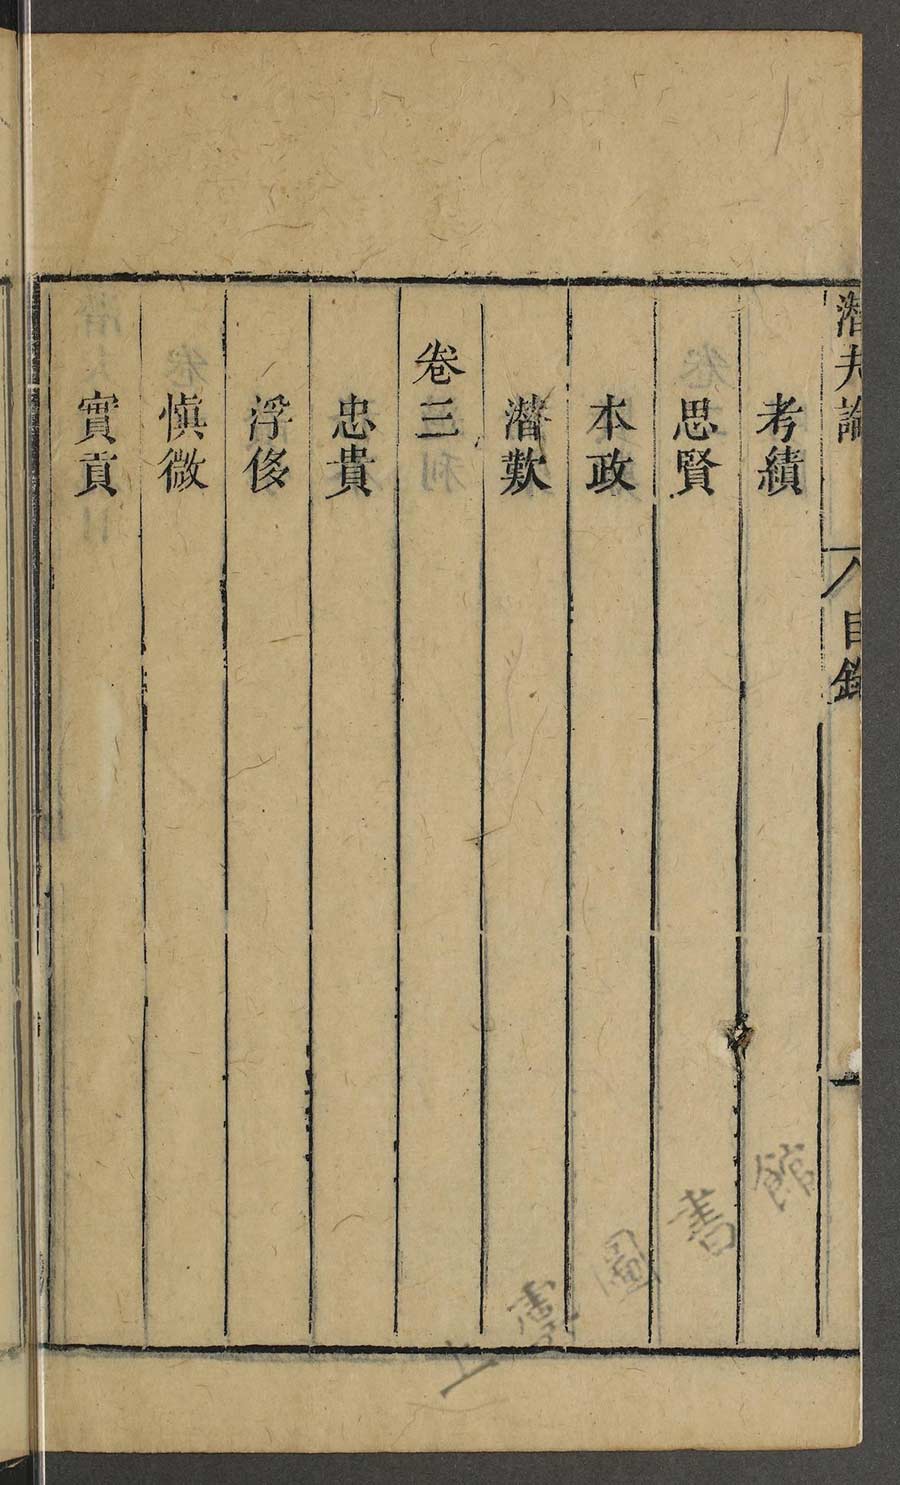 潛夫論 目錄 一
考績
思賢
本政
潛歎
卷三
忠貴
浮侈
慎微
實貢
上海圖書館